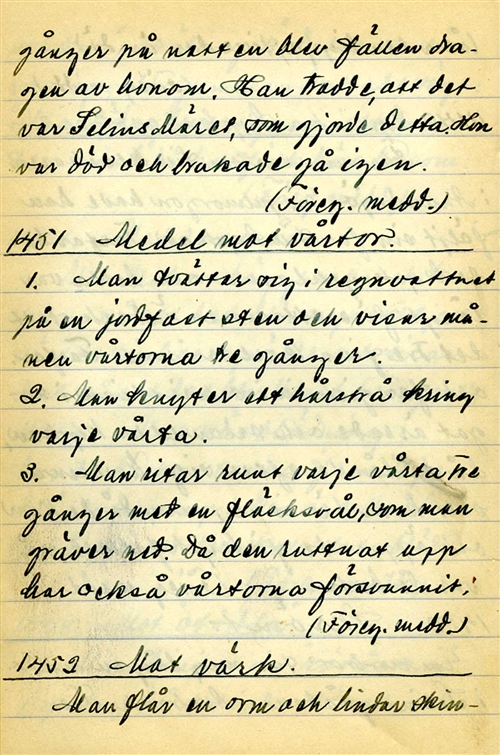 gånger på natten blev fällen dra-
gen av honom. Han trodde, att det
var Selins Märet, som gjorde detta. Hon
var död och brukade gå igen.
(Föreg. medd.)
1451 Medel mot vårtor.
1. Man tvättar sig i regnvattnet
på en jordfast sten och visar må-
nen vårtorna tre gånger.
2. Man knyter ett hårstrå kring
varje vårta.
3. Man ritar runt varje vårta tre
gånger med en fläsksvål, som man
gräver ned. Då den ruttnat upp
har också vårtorna försvunnit.
(Föreg. medd.)
1452 Mot värk.
Man flår en orm och lindar skin-